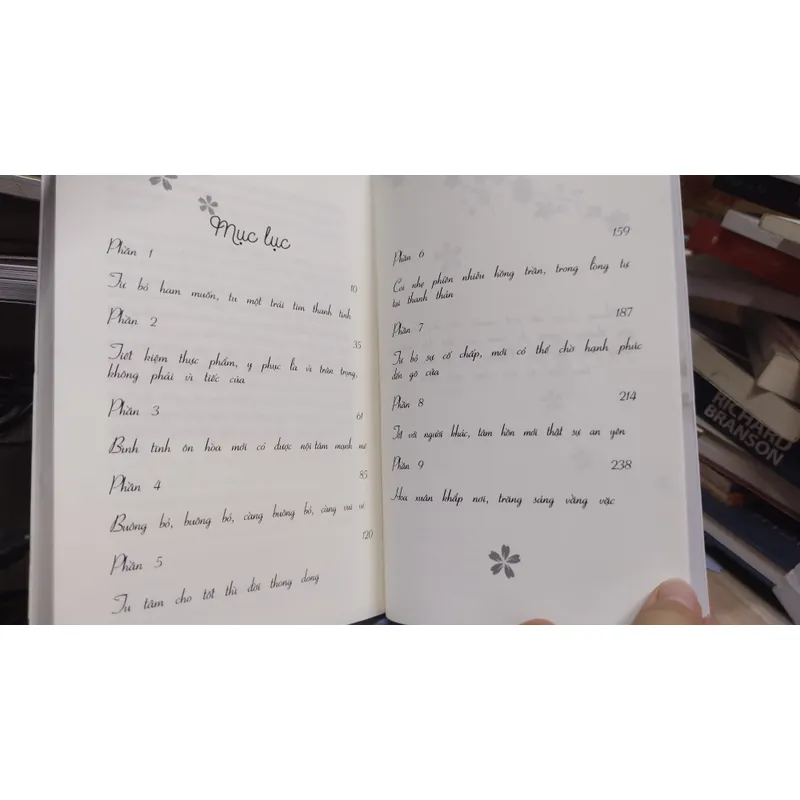 Mục lục
Phần 1
Từ bỏ ham muốn, tu một trái tim thanh tịnh
10
Phần 2
Tiết kiệm thực phẩm, y phục là vì trân trọng,
không phải vì tiếc của
35
Phần 3
Bình tĩnh ôn hòa mới có được nội tâm mạnh mẽ
61
Phần 4
Buông bỏ, buông bỏ, càng buông bỏ, càng vui vẻ
85
Phần 5
Tu tâm cho tốt thì đời thong dong
120
Phần 6
Coi nhẹ phiền nhiễu hồng trần, trong lòng tự
tại thanh thản
159
Phần 7
Từ bỏ sự cố chấp, mới có thể chờ hạnh phúc
đến gõ cửa
187
Phần 8
Tốt với người khác, tâm hồn mới thật sự an yên
214
Phần 9
Hoa xuân khắp nơi, trăng sáng vằng vặc
238
RICHARD
BRANSON